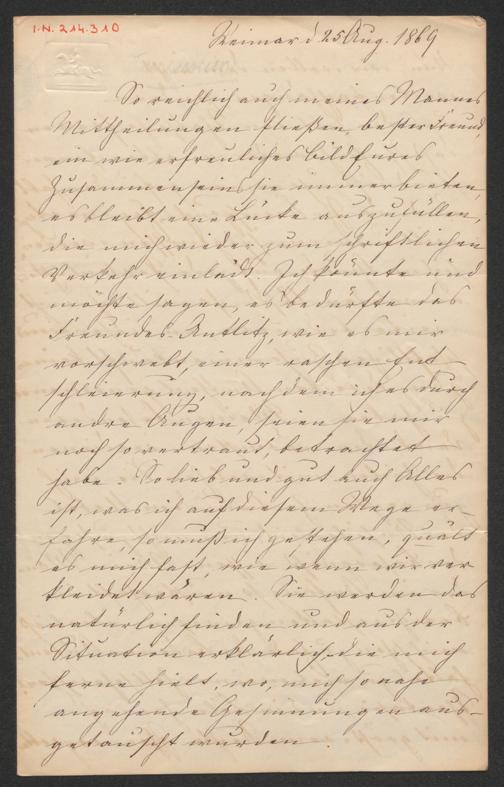 I.N. 214.310
Weimar d 25 Aug. 1869
So reichlich auch meines Mannes
Mittheilungen fließen, bester Freund,
ein wie erfreuliches Bild Eures
Zusammenseins sie immer bieten,
es bleibt eine Lücke auszufüllen,
die mich wieder zum schriftlichen
Verkehr einlädt. Ich könnte und
möchte sagen, es bedürfte des
Freundes Antlitz, wie es mir
vorschwebt, einer raschen Ent
schleierung, nachdem ich es durch
andre Augen, seien sie mir
noch so vertraut, betrachtet
habe. So lieb und gut auch Alles
ist, was ich auf diesem Wege er-
fahre, so muß ich gestehen, quält
es mich fast, wie wenn wir ver
kleidet wären. Sie werden das
natürlich finden und aus der
Situation erklärlich, die mich
ferne hielt, wo, mich so nahe
angehende Gesinnungen aus-
getauscht wurden.